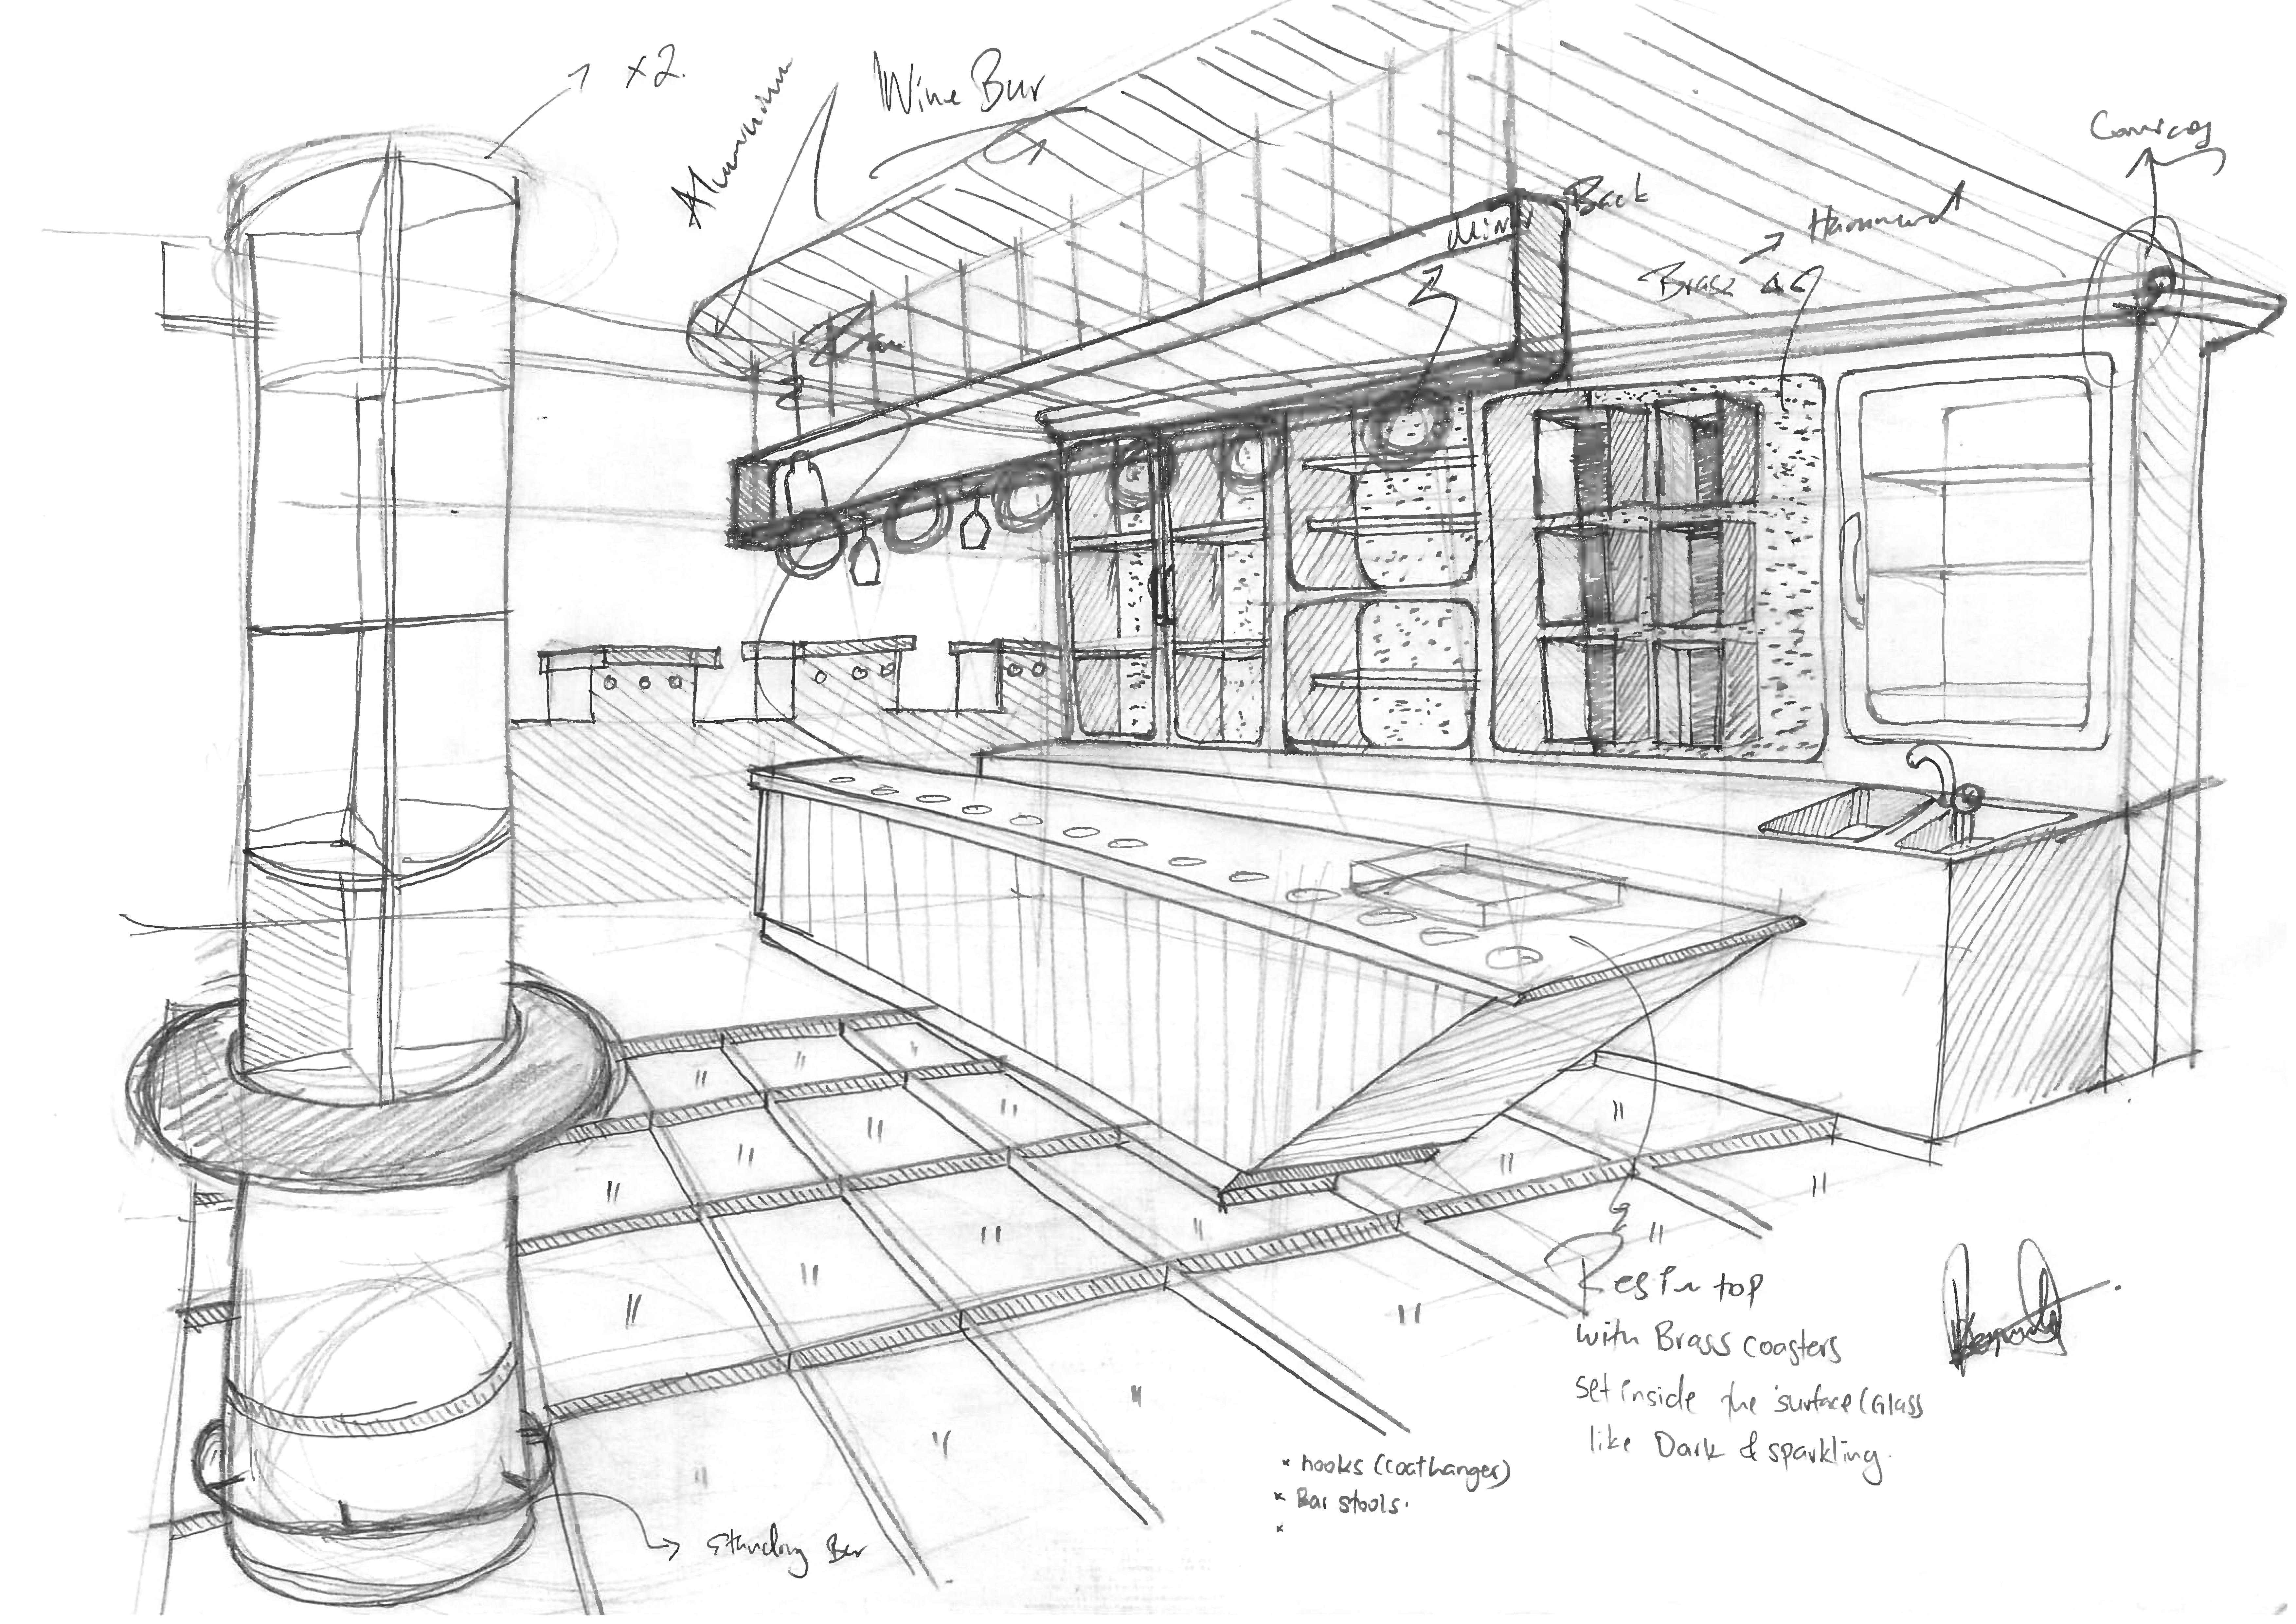 x2.
Wine Bar
Aluminium
Cornices
Back
Hammered
Brass
Resin top
with Brass coasters
set inside the surface (Glass
like Dark & sparkling.
* hooks (coathanger)
* Bar stools.
*
Standing Bar